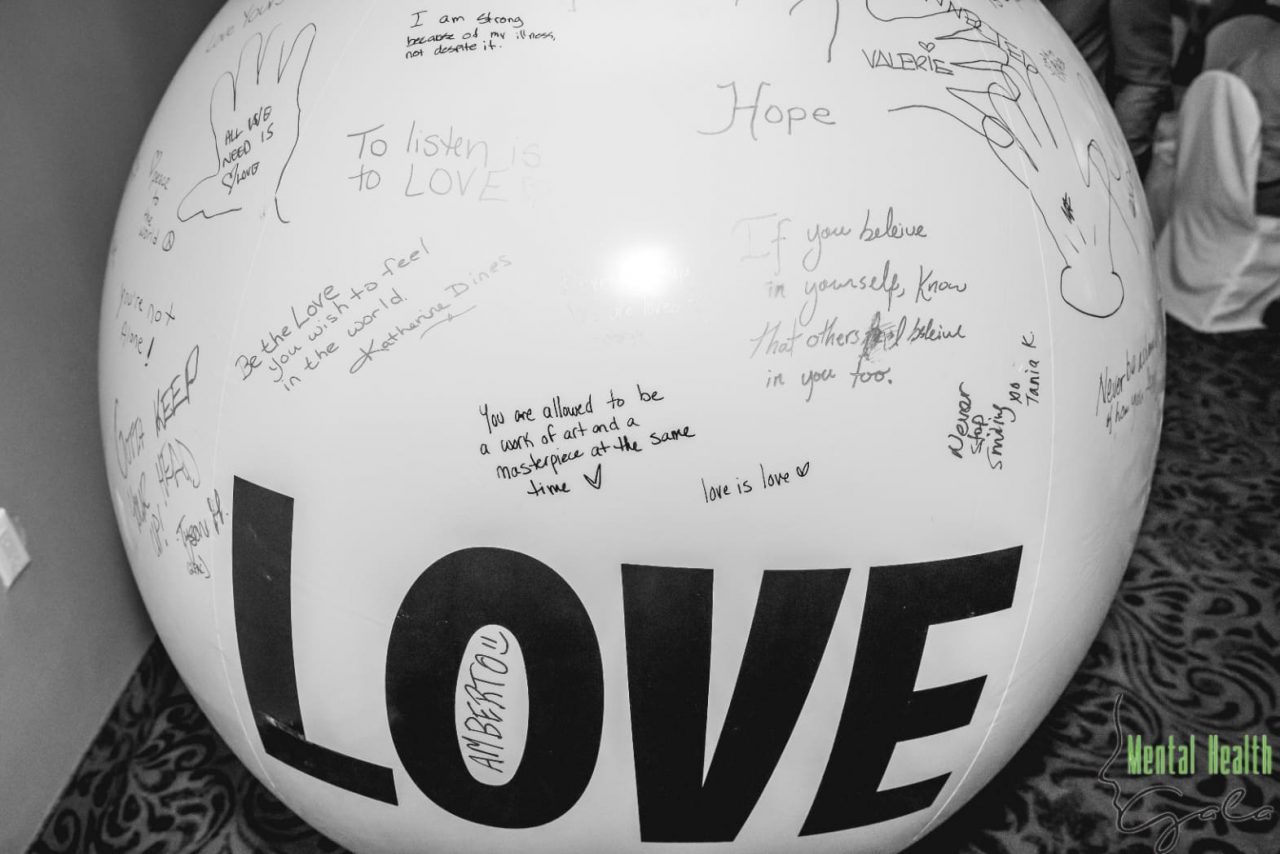 Love Yours
I am strong
because of my illness,
not despite it.
VALERIE
ALL WE
NEED IS
LOVE
Hope
To listen is
to LOVE
peace
to
the
world
If you beleive
in yourself, know
that others beleive
in you too.
Be the Love
you wish to feel
in the world.
Katharine Dines
you're not
alone!
GOTTA KEEP
YOUR HEAD
UP!
Tyson H.
You are allowed to be
a work of art and a
masterpiece at the same
time
love is love
Never
stop
smiling
xo
Tania K.
Never be
of how
LOVE
AMBERTO
Mental Health
Gala